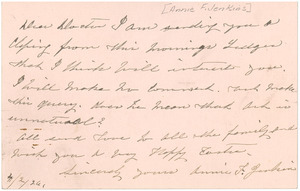 [Annie F. Jenkins]
Dear Doctor I am sending you a
Clipping from this mornings Ledger
that I think will interest you.
I will make no comment. but make
this query. Does he mean that Art is
unnatural?
All send love to all the family and
wish you a very Happy Easter.
Sincerely yours Annie F. Jenkins
4/2/26.